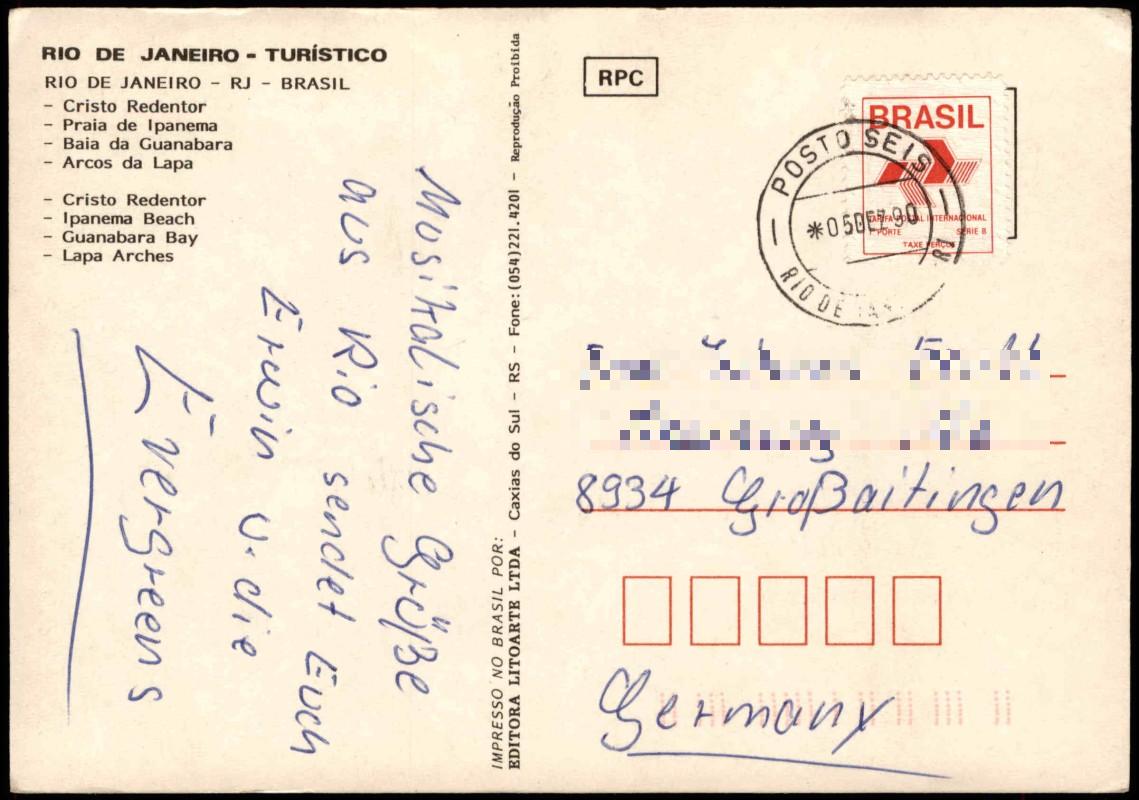 RIO DE JANEIRO - TURÍSTICO
RIO DE JANEIRO - RJ - BRASIL
- Cristo Redentor
- Praia de Ipanema
- Baia da Guanabara
- Arcos da Lapa
- Cristo Redentor
- Ipanema Beach
- Guanabara Bay
- Lapa Arches
Musikalische Grüße
aus Rio sendet Euch
Erwin u. die
Evergreens
IMPRESSO NO BRASIL POR:
EDITORA LITOARTE LTDA - Caxias do Sul - RS - Fone: (054)221.4201 - Reprodução Proibida
RPC
BRASIL
TARIFA POSTAL INTERNACIONAL
1º PORTE SÉRIE B
TAXE PERÇUE
POSTO SEIS
*05DEZ90
RIO DE JAN RJ
8934 Großaitingen
Germany